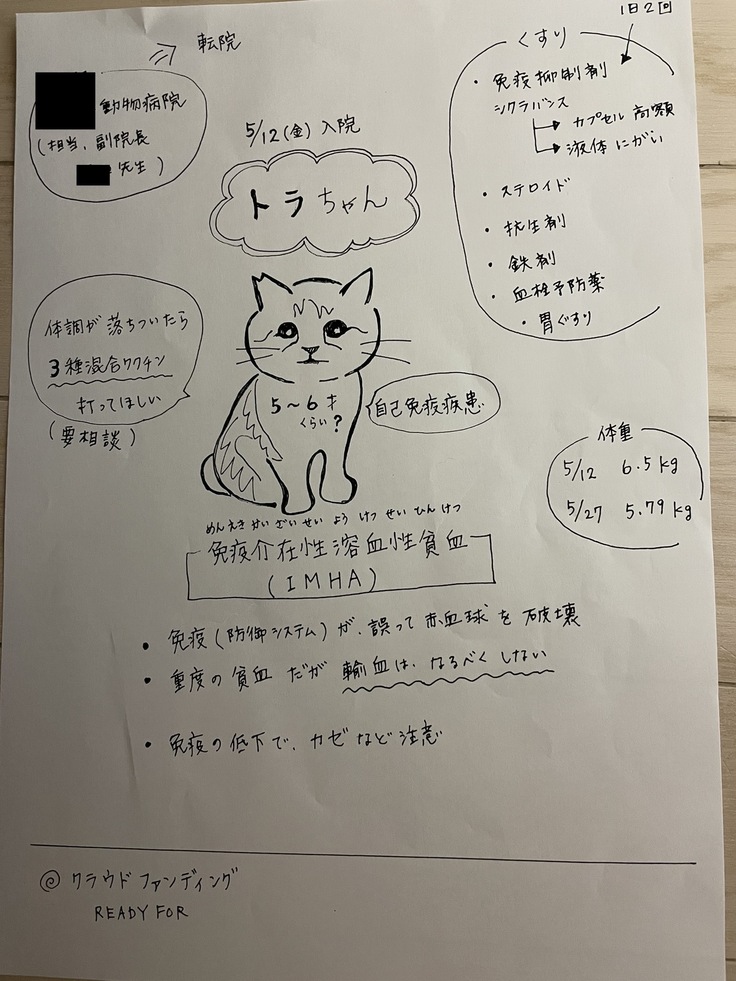 1日2回
転院
動物病院
(担当、副院長
先生)
5/12(金)入院
トラちゃん
くすり
・免疫抑制剤
シクラバンス
カプセル 高額
液体 にがい
・ステロイド
・抗生剤
・鉄剤
・血栓予防薬
・胃ぐすり
体調が落ちついたら
3種混合ワクチン
打ってほしい
(要相談)
5~6才
くらい?
自己免疫疾患
体重
5/12 6.5kg
5/27 5.79kg
めんえきかいざいせいようけつせいひんけつ
免疫介在性溶血性貧血
(IMHA)
・免疫(防御システム)が、誤って赤血球を破壊
・重度の貧血だが 輸血は、なるべくしない
・免疫の低下で、カゼなど注意
◎クラウドファンディング
READY FOR